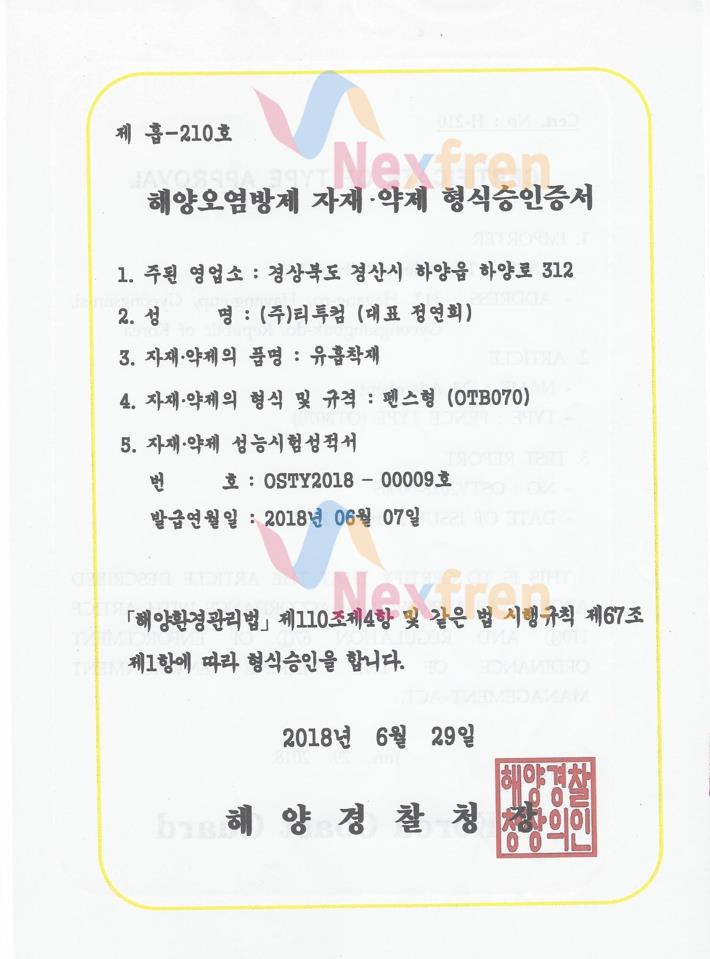 제 흡-210호
Nexfren
해양오염방제 자재·약제 형식승인증서
1. 주된 영업소 : 경상북도 경산시 하양읍 하양로 312
2. 성 명 : (주)티투컴 (대표 정연희)
3. 자재·약제의 품명 : 유흡착재
4. 자재·약제의 형식 및 규격 : 펜스형 (OTB070)
5. 자재·약제 성능시험성적서
번 호 : OSTY2018 - 00009호
발급연월일 : 2018년 06월 07일
Nexfren
「해양환경관리법」 제110조제4항 및 같은 법 시행규칙 제67조
제1항에 따라 형식승인을 합니다.
2018년 6월 29일
해 양 경 찰 청 장
해양경찰
청장의인